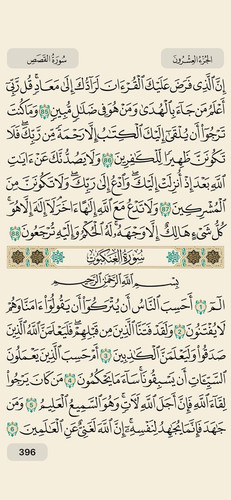 الجزء العشرون سورة القصص
إِنَّ ٱلَّذِى فَرَضَ عَلَيْكَ ٱلْقُرْءَانَ لَرَآدُّكَ إِلَىٰ مَعَادٍ ۚ قُل رَّبِّىٓ
أَعْلَمُ مَن جَآءَ بِٱلْهُدَىٰ وَمَنْ هُوَ فِى ضَلَٰلٍ مُّبِينٍ 85 وَمَا كُنتَ
تَرْجُوٓا۟ أَن يُلْقَىٰٓ إِلَيْكَ ٱلْكِتَٰبُ إِلَّا رَحْمَةً مِّن رَّبِّكَ ۖ فَلَا
تَكُونَنَّ ظَهِيرًا لِّلْكَٰفِرِينَ 86 وَلَا يَصُدُّنَّكَ عَنْ ءَايَٰتِ
ٱللَّهِ بَعْدَ إِذْ أُنزِلَتْ إِلَيْكَ ۖ وَٱدْعُ إِلَىٰ رَبِّكَ ۖ وَلَا تَكُونَنَّ مِنَ
ٱلْمُشْرِكِينَ 87 وَلَا تَدْعُ مَعَ ٱللَّهِ إِلَٰهًا ءَاخَرَ ۘ لَآ إِلَٰهَ إِلَّا هُوَ ۚ
كُلُّ شَىْءٍ هَالِكٌ إِلَّا وَجْهَهُۥ ۚ لَهُ ٱلْحُكْمُ وَإِلَيْهِ تُرْجَعُونَ 88
سورة العنكبوت
بِسْمِ ٱللَّهِ ٱلرَّحْمَٰنِ ٱلرَّحِيمِ
الٓمٓ 1 أَحَسِبَ ٱلنَّاسُ أَن يُتْرَكُوٓا۟ أَن يَقُولُوٓا۟ ءَامَنَّا وَهُمْ
لَا يُفْتَنُونَ 2 وَلَقَدْ فَتَنَّا ٱلَّذِينَ مِن قَبْلِهِمْ ۖ فَلَيَعْلَمَنَّ ٱللَّهُ ٱلَّذِينَ
صَدَقُوا۟ وَلَيَعْلَمَنَّ ٱلْكَٰذِبِينَ 3 أَمْ حَسِبَ ٱلَّذِينَ يَعْمَلُونَ
ٱلسَّيِّـَٔاتِ أَن يَسْبِقُونَا ۚ سَآءَ مَا يَحْكُمُونَ 4 مَن كَانَ يَرْجُوا۟
لِقَآءَ ٱللَّهِ فَإِنَّ أَجَلَ ٱللَّهِ لَـَٔاتٍ ۚ وَهُوَ ٱلسَّمِيعُ ٱلْعَلِيمُ 5 وَمَن
جَٰهَدَ فَإِنَّمَا يُجَٰهِدُ لِنَفْسِهِۦٓ ۚ إِنَّ ٱللَّهَ لَغَنِىٌّ عَنِ ٱلْعَٰلَمِينَ 6
396